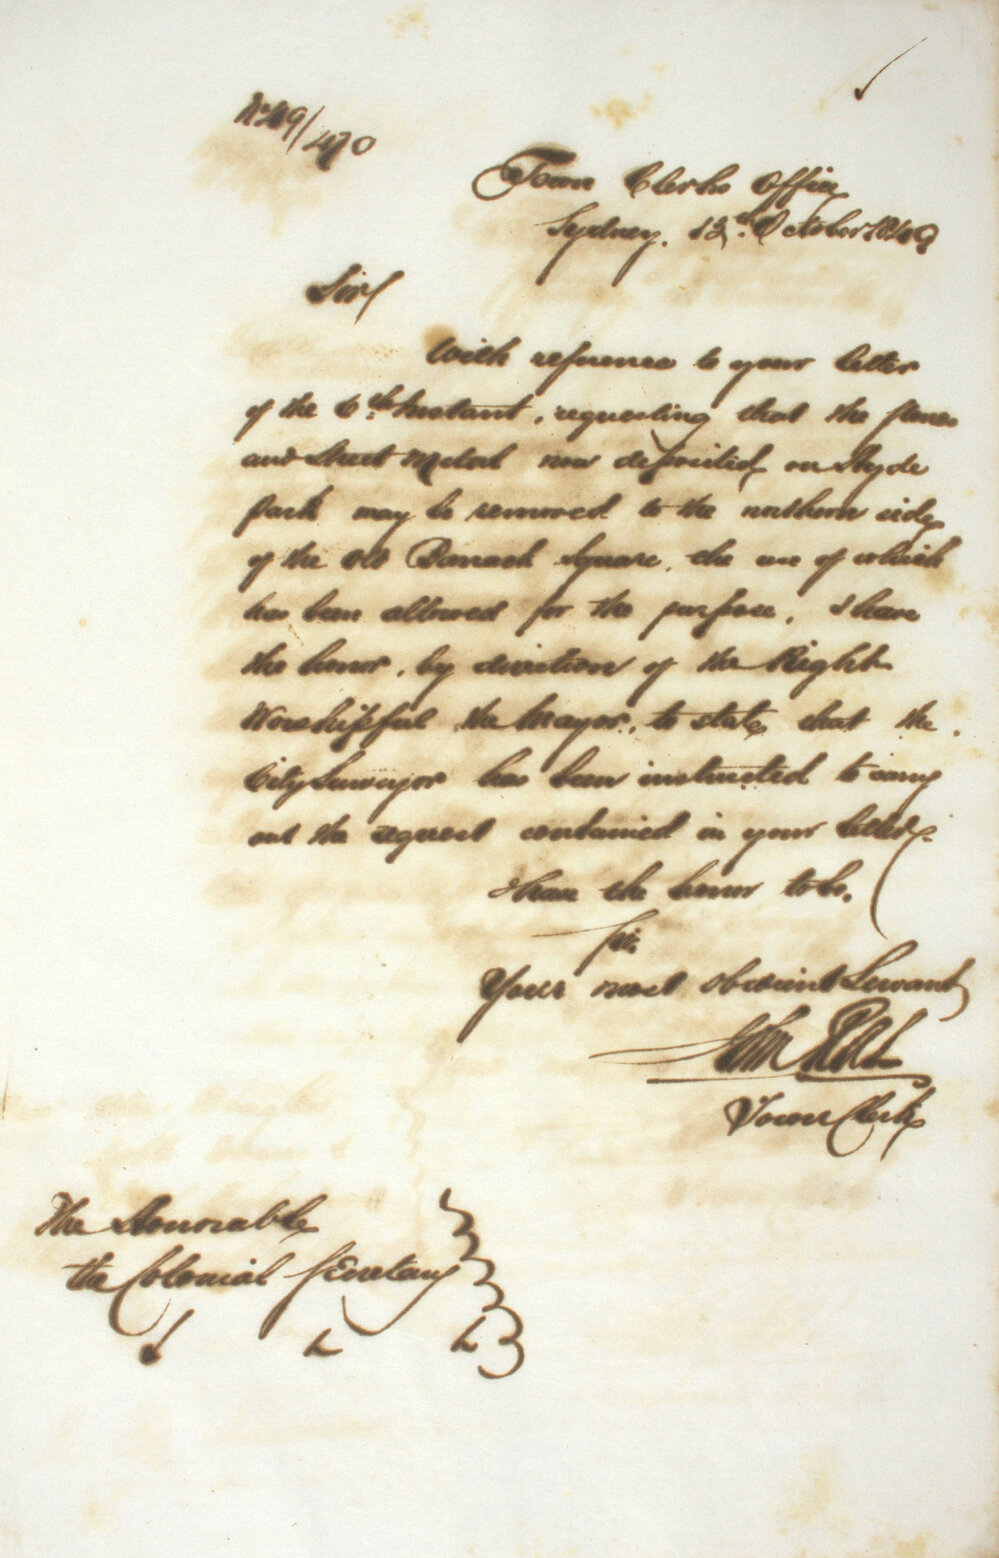 No 49/470
Town Clerks Office
Sydney. 13th October 1849
Sir/
With reference to your letter
of the 6th Instant, requesting that the
and Street Metal now deposited on Hyde
Park may be removed to the northern side
of the Old Barrack Square, the use of which
has been allowed for the purpose, I have
the honor, by direction of the Right
Worshipful the Mayor, to state that the
City Surveyor has been instructed to carry
out the request contained in your letter.
I have the honor to be,
Sir,
Your most obedient Servant
John
Town Clerk
The Honorable
the Colonial Secretary